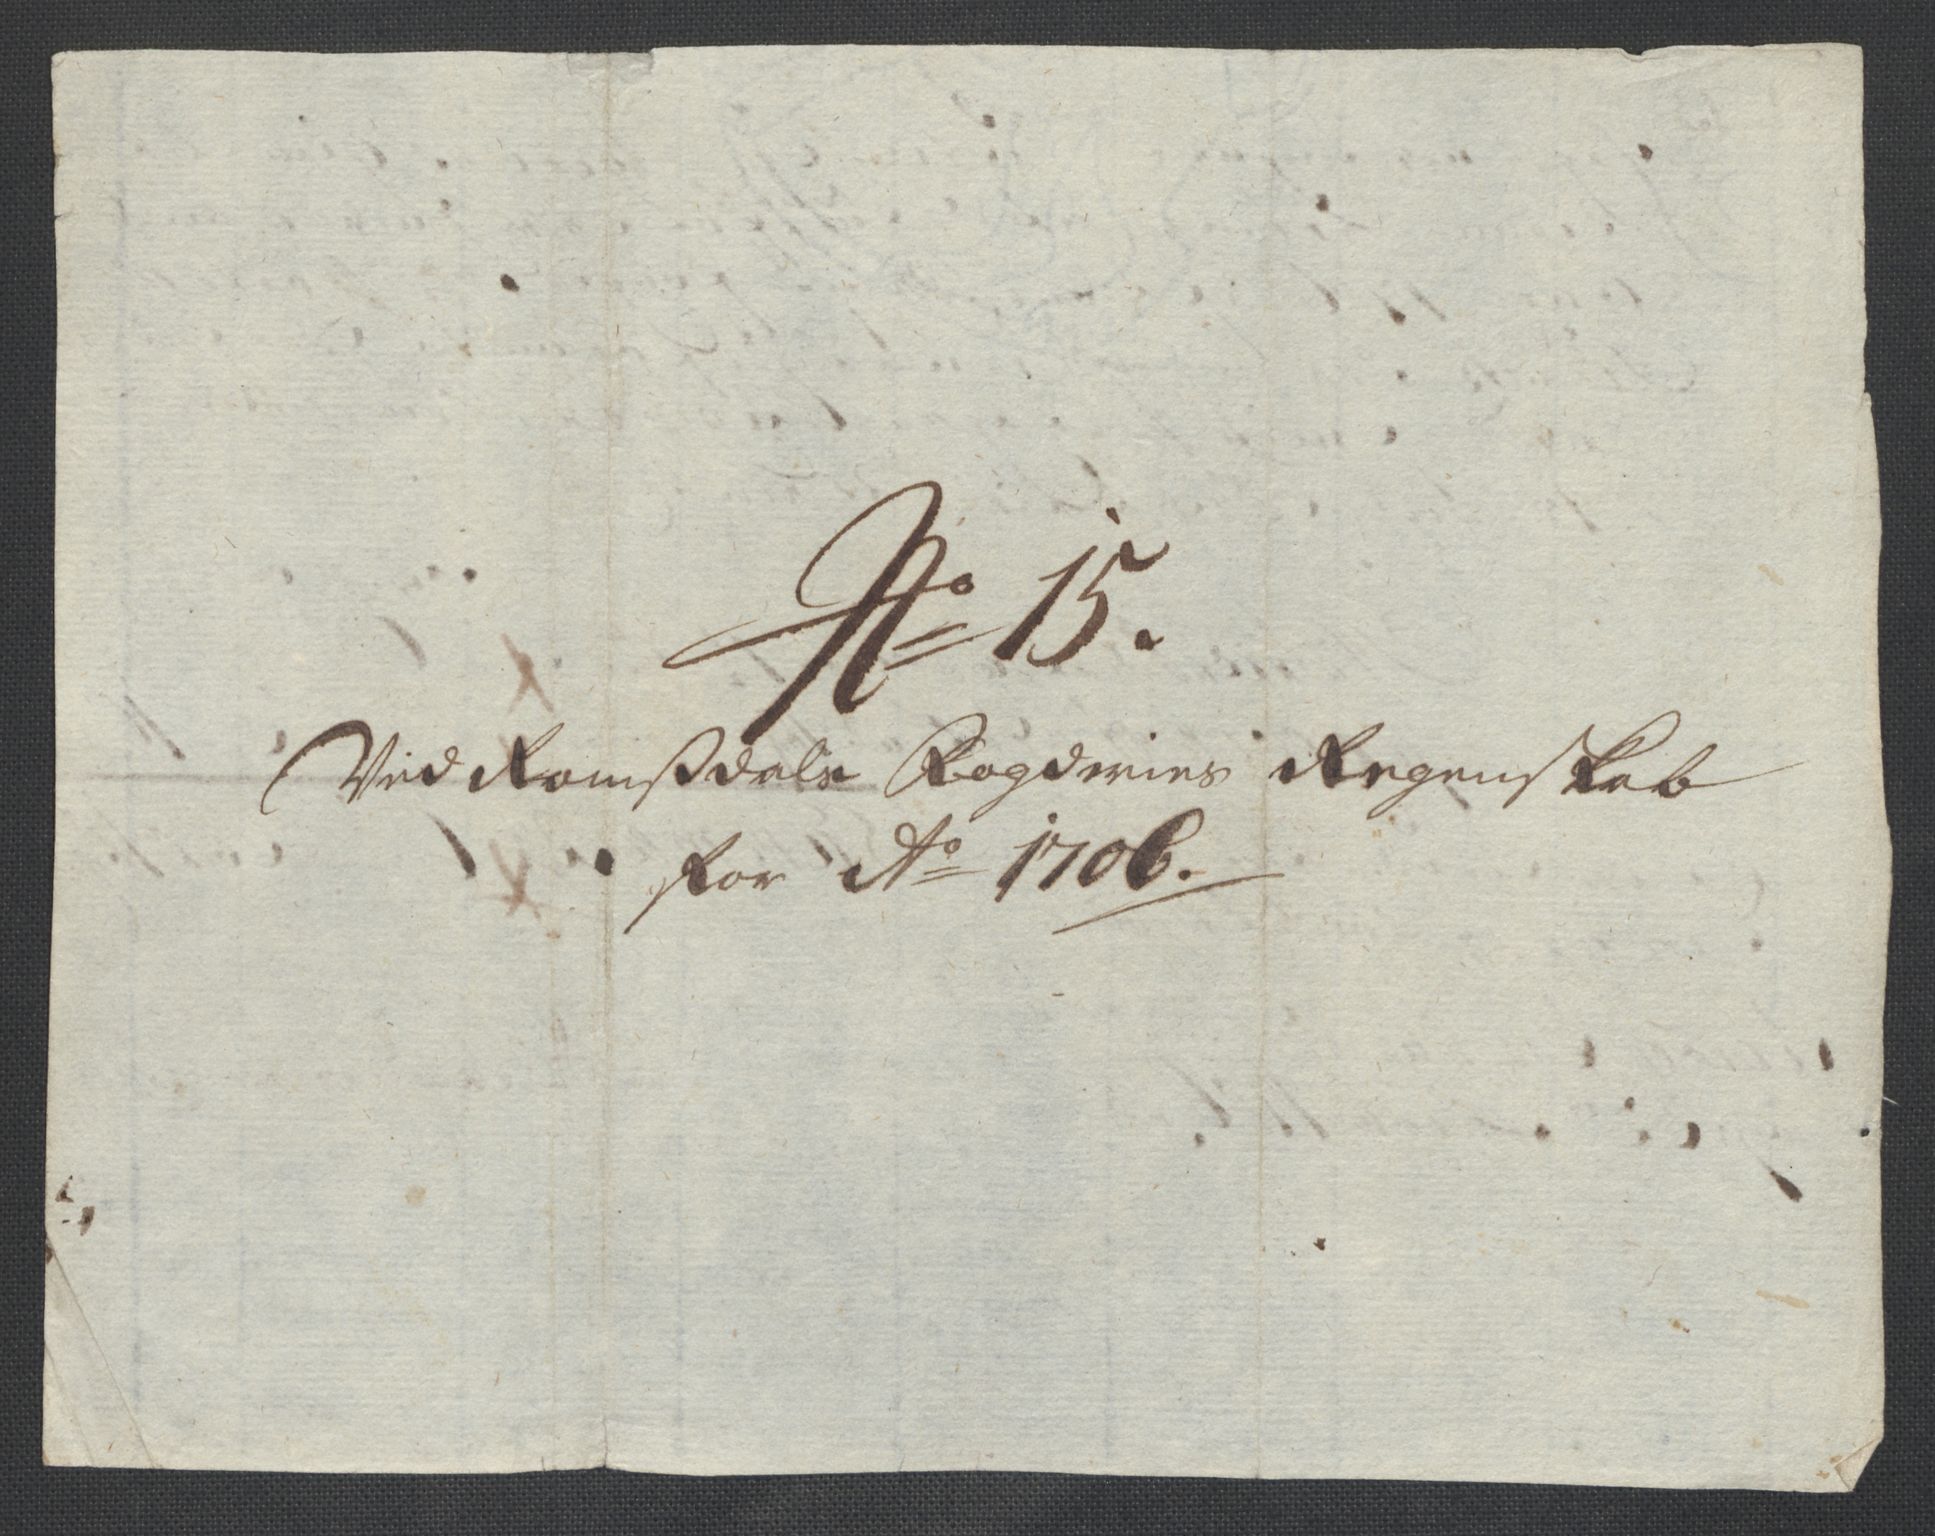 No 15.
Ved Romsdals Fogderies Regenskab
for Ao 1706.